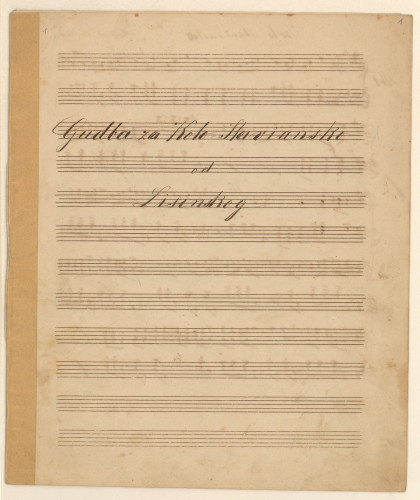 Gudba za Kolo Slaviansko
od
Lisinskog